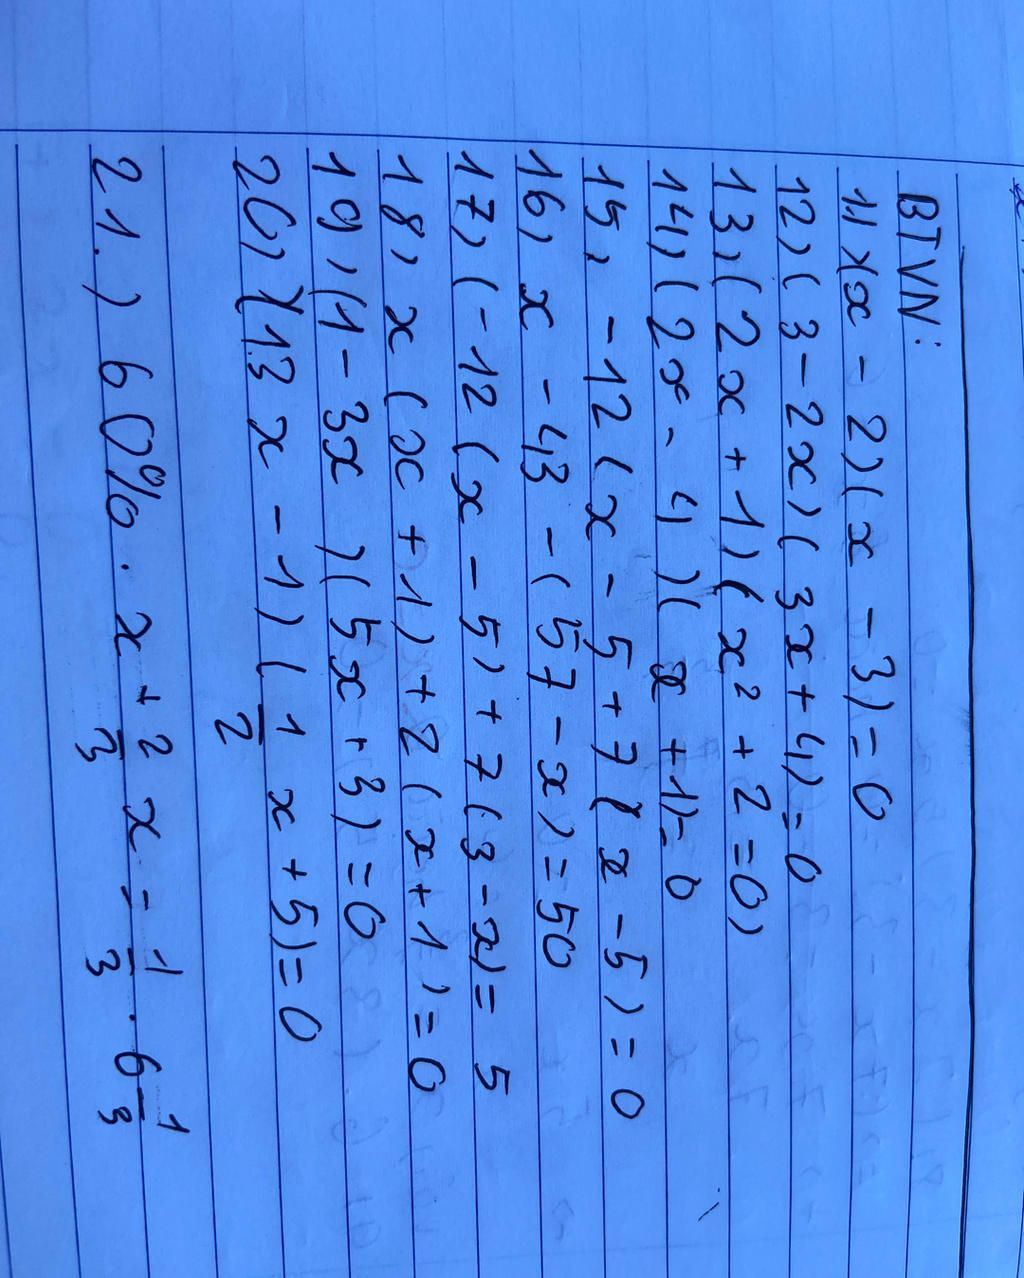 BTVN:
11, (x - 2)(x - 3) = 0
12, (3 - 2x)(3x + 4) = 0
13, (2x + 1)(x² + 2 = 0)
14, (2x - 4)(x + 1) = 0
15, -12(x - 5 + 7(x - 5) = 0
16, x - 43 - (57 - x) = 50
17, (-12(x - 5) + 7(3 - x) = 5
18, x(x + 1) + 2(x + 1) = 0
19, (1 - 3x)(5x + 3) = 0
20, (13x - 1)(1/2 x + 5) = 0
21.) 60% . x + 2/3 x = 1/3 . 6 1/3